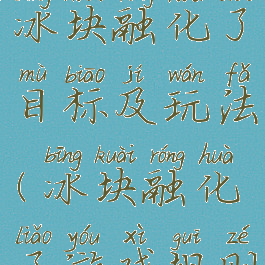 冰块融化了
mù biāo jí wán fǎ
目标及玩法
bīng kuài róng huà
(冰块融化
liǎo yóu xì guī zé